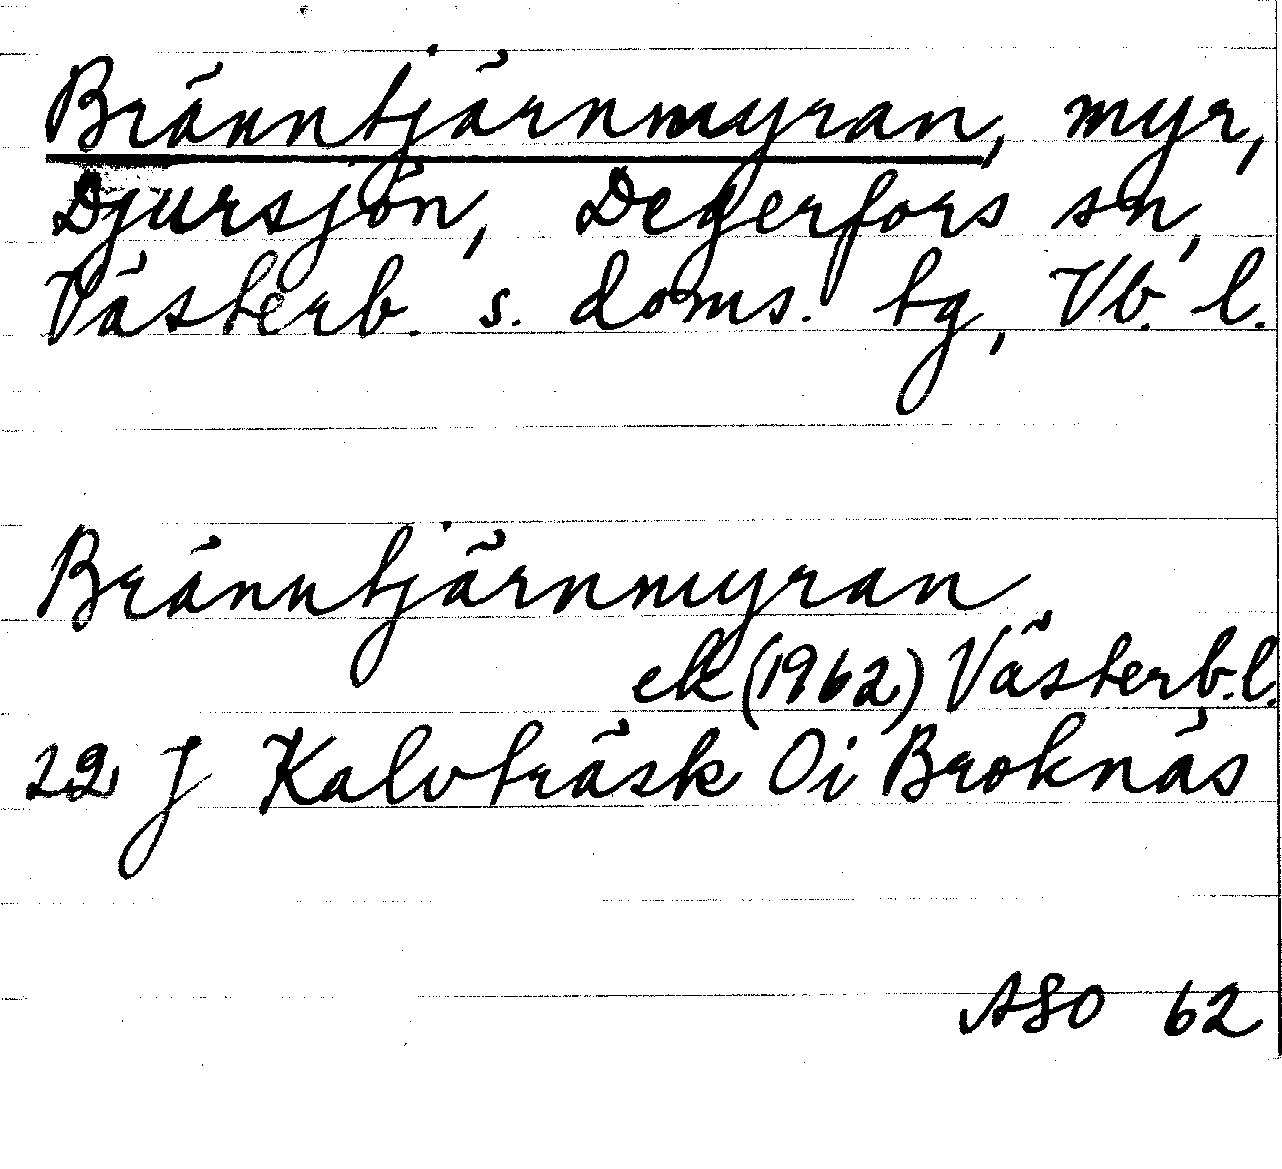 Bränntjärnmyran, myr,
Djursjön, Degerfors sn,
Västerb. s. doms. tg, Vb. l.
Bränntjärnmyran
ek (1962) Västerb. l.
22 J Kalvträsk Oi Broknäs
ASO 62